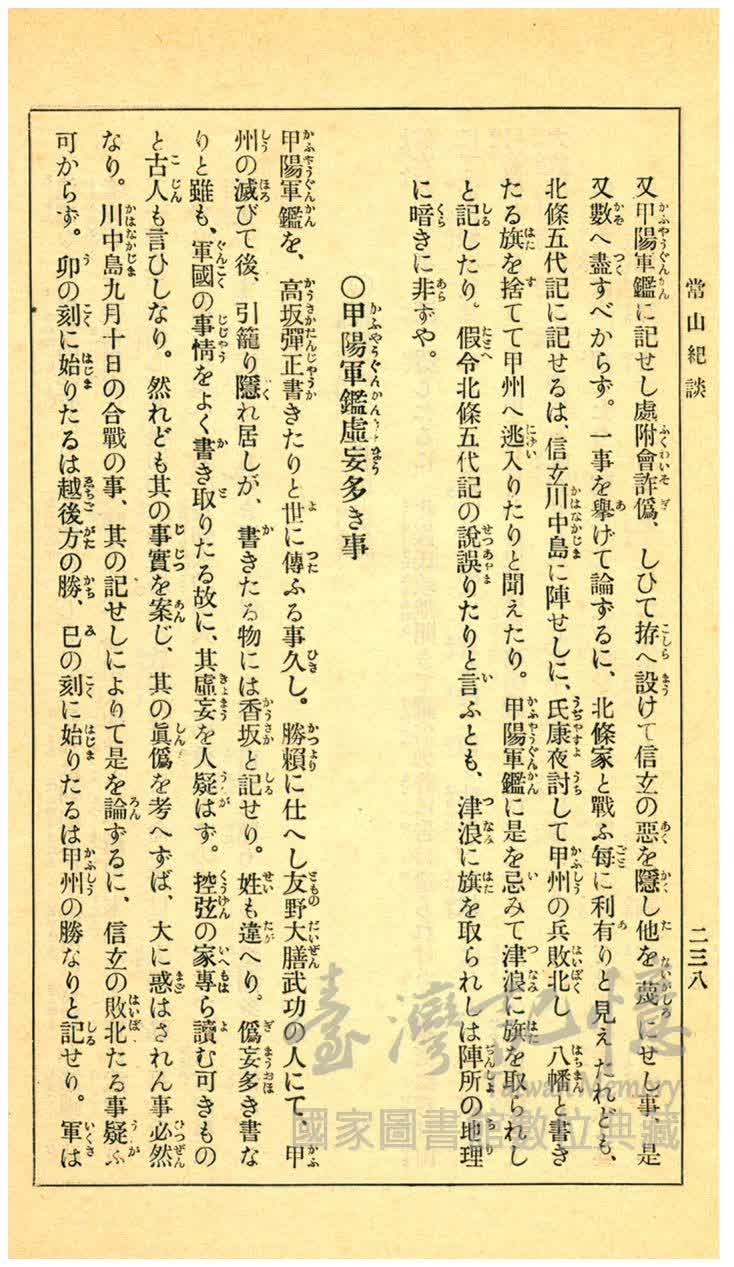 常山紀談
二三八
又甲陽軍鑑に記せし處附會詐僞、しひて拵へ設けて信玄の惡を隱し他を蔑にせし事、是
又數へ盡すべからず。一事を擧げて論ずるに、北條家と戰ふ每に利有りと見えたれども、
北條五代記に記せるは、信玄川中島に陣せしに、氏康夜討して甲州の兵敗北し、八幡と書き
たる旗を捨てて甲州へ逃入りたりと聞えたり。甲陽軍鑑に是を忌みて津浪に旗を取られし
と記したり。假令北條五代記の說誤りたりと言ふとも、津浪に旗を取られしは陣所の地理
に暗きに非ずや。
〇甲陽軍鑑虛妄多き事
甲陽軍鑑を、高坂彈正書きたりと世に傳ふる事久し。勝賴に仕へし友野大膳武功の人にて、甲
州の滅びて後、引籠り隱れ居しが、書きたる物には香坂と記せり。姓も違へり。僞妄多き書な
りと雖も、軍國の事情をよく書き取りたる故に、其虛妄を人疑はず。控弦の家專ら讀む可きもの
と古人も言ひしなり。然れども其の事實を案じ、其の眞僞を考へずば、大に惑はされん事必然
なり。川中島九月十日の合戰の事、其の記せしによりて是を論ずるに、信玄の敗北たる事疑ふ
可からず。卯の刻に始りたるは越後方の勝、巳の刻に始りたるは甲州の勝なりと記せり。軍は
臺灣記憶
Taiwan Memory
國家圖書館數位典藏